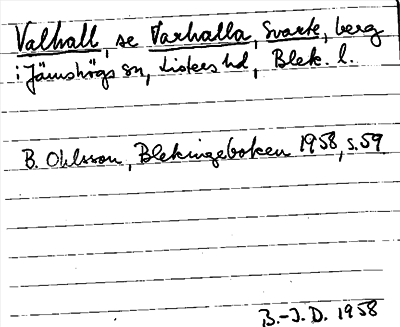 Valhall, se Varhalla, Svarte, berg
i Jämshögs sn, Listers hd, Blek. l.
B. Ohlsson, Blekingeboken 1958, s. 59
B.-J. D. 1958